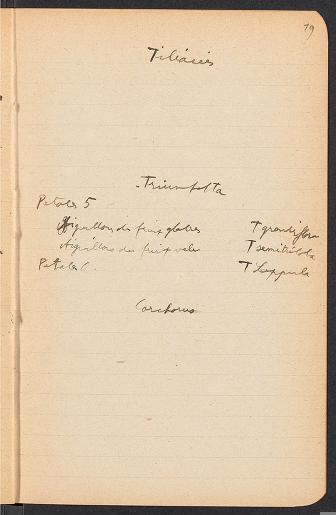 19
Tiliacées
Triumfetta
Petales 5
Aiguillons du fruit glabres T grandiflora
Aiguillons du fruit velu T semitriloba
Petales 0. T Lappula
Corchorus